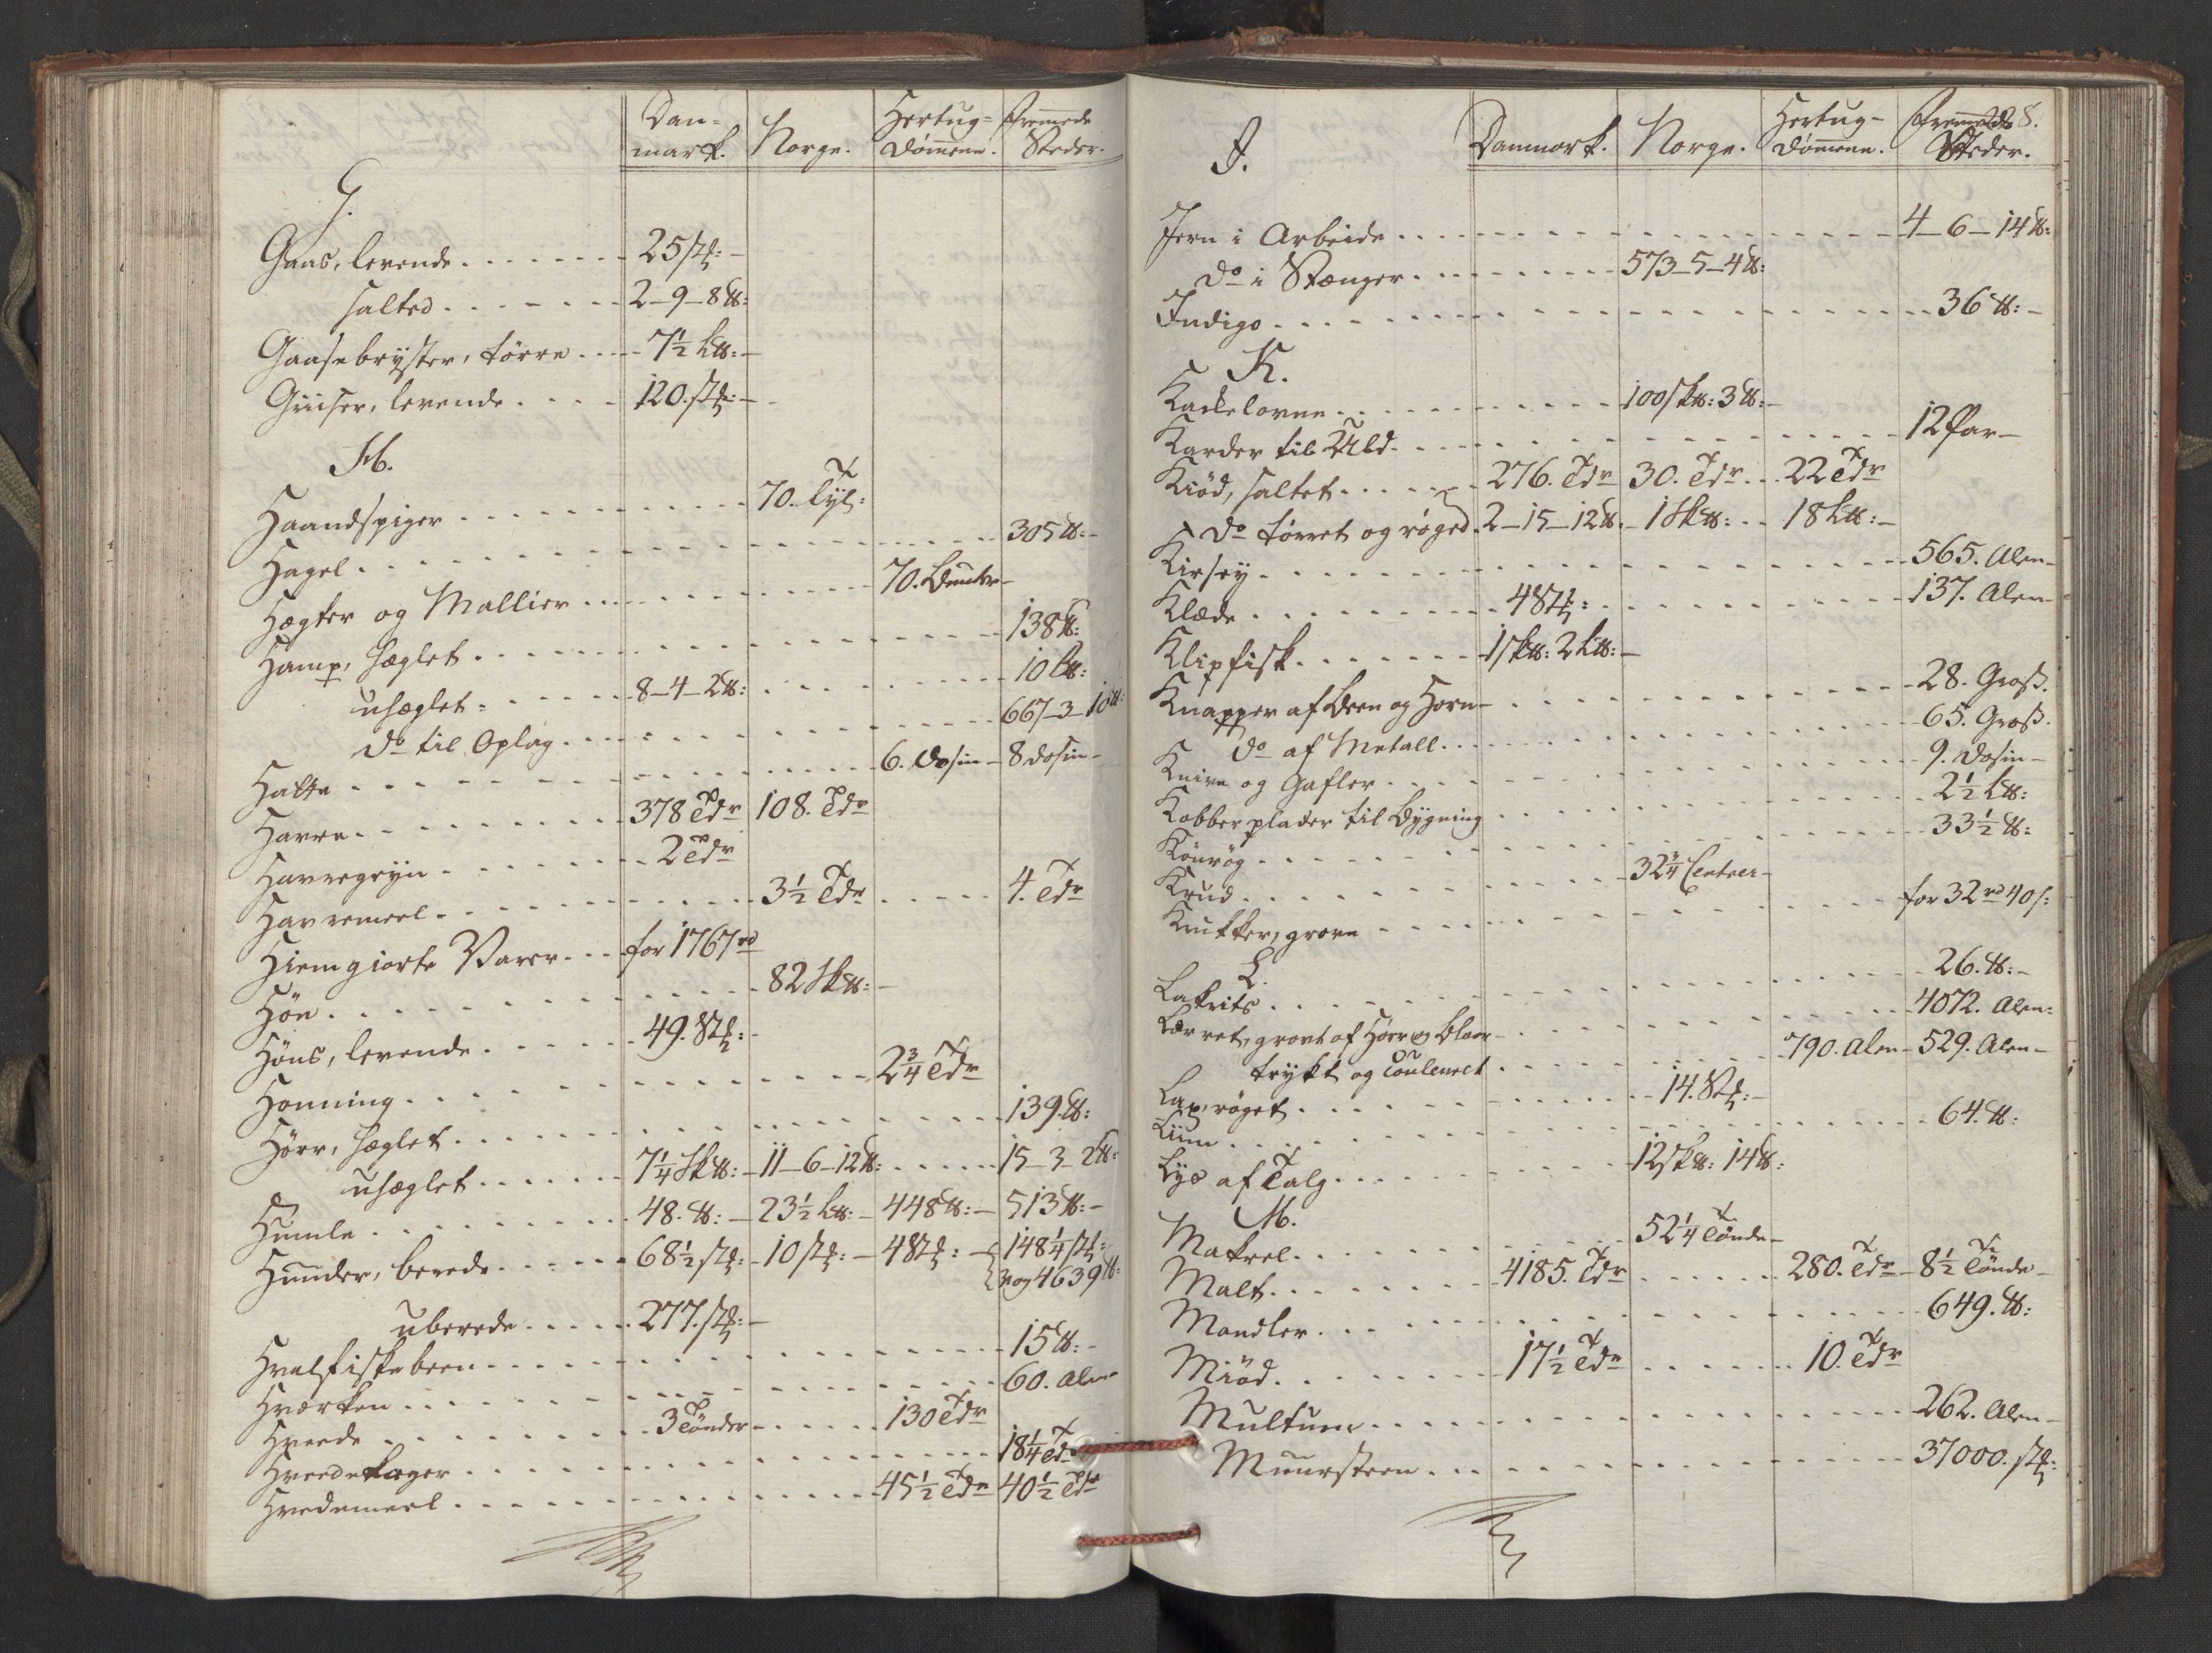 Dan-
mark. Norge. Hertug-
Dømene. Fremmede
Steder.
G.
Gaas, levende 25 stk:
salted 2-9-8 ℔:
Gaasebryster, tørre 7½ L℔:
Griiser, levende 120. stk:
H.
Haandspiger 70. Tyl:
Hagel 305 ℔:
Hegter og Mallier 70. Bundter
Hamp, hæglet 138 ℔:
uhæglet 8-4-2 ℔: 10 L℔:
do til Oplag 667-3-10 ℔:
Hatte 6. Dosin 8 Dosin
Havre 378 Tdr 108. Tdr
Havregryn 2 Tdr
Havremeel 3½ Tdr 4. Tdr
Hiemgiorte Varer for 1767 rd
Høe 82 Sk℔:
Høns, levende 49. Stk:
Honning 2¾ Tdr
Hørr, hæglet 139. ℔:
uhæglet 7¼ Sk℔: 11-6-12 ℔: 15-3-2 ℔:
Humle 48. ℔: 23½ L℔: 448 ℔: 513 ℔:
Huuder, berede 68½ stk: 10 stk: 4 Stk: 148¼ stk:
og 4639 ℔:
uberede 277. stk:
Hvalfiskebeen 15 ℔:
Hværken 60. Alen
Hvede 3 Tønder 130 Tdr
Hvedekager 18¼ Td
Hvedemeel 45½ Tdr 40½ Tdr
Danmark. Norge. Hertug-
Dømene. Fremmede
Steder.
8.
I.
Jern i Arbeide 4-6-14 ℔:
do i Stænger 573-5-4 ℔:
Indigo 36 ℔:
K.
Kackelovne 100 sk℔: 3 ℔:
Karder til Uld 12 Par
Kiød, saltet 276. Tdr 30. Tdr 22 Tdr
do tørret og røged 2-15-12 ℔. 1 Sk℔: 18 L℔:
Kirsey 565. Alen
Klæde 4 Stk: 137. Alen
Klipfisk 1 sk℔: 2 L℔:
Knapper af Been og Horn 28. Gross.
do af Metall 65. Gross.
Knive og Gafler 9. Dosin
Kobberplader til Bygning 2½ L℔:
Kønrøg 33½ ℔:
Krud 32¾ Centner
Krukker, grove for 32 rd 40 s:
L.
Lakrits 26. ℔:
Lærret, grovt af Hør og Blaar 4072. Alen
trykt og Couleuret 790. Alen 529. Alen
Lax, røget 14. Stk:
Liim 64. ℔:
Lys af Talg 12 sk℔: 14 ℔:
M.
Makrel 52¼ Tønde
Malt 4185. Tdr 280. Tdr 8½ Tønde
Mandler 649. ℔:
Miød 17½ Tdr 10. Tdr
Multum 262. Alen
Muursteen 37000. stk: